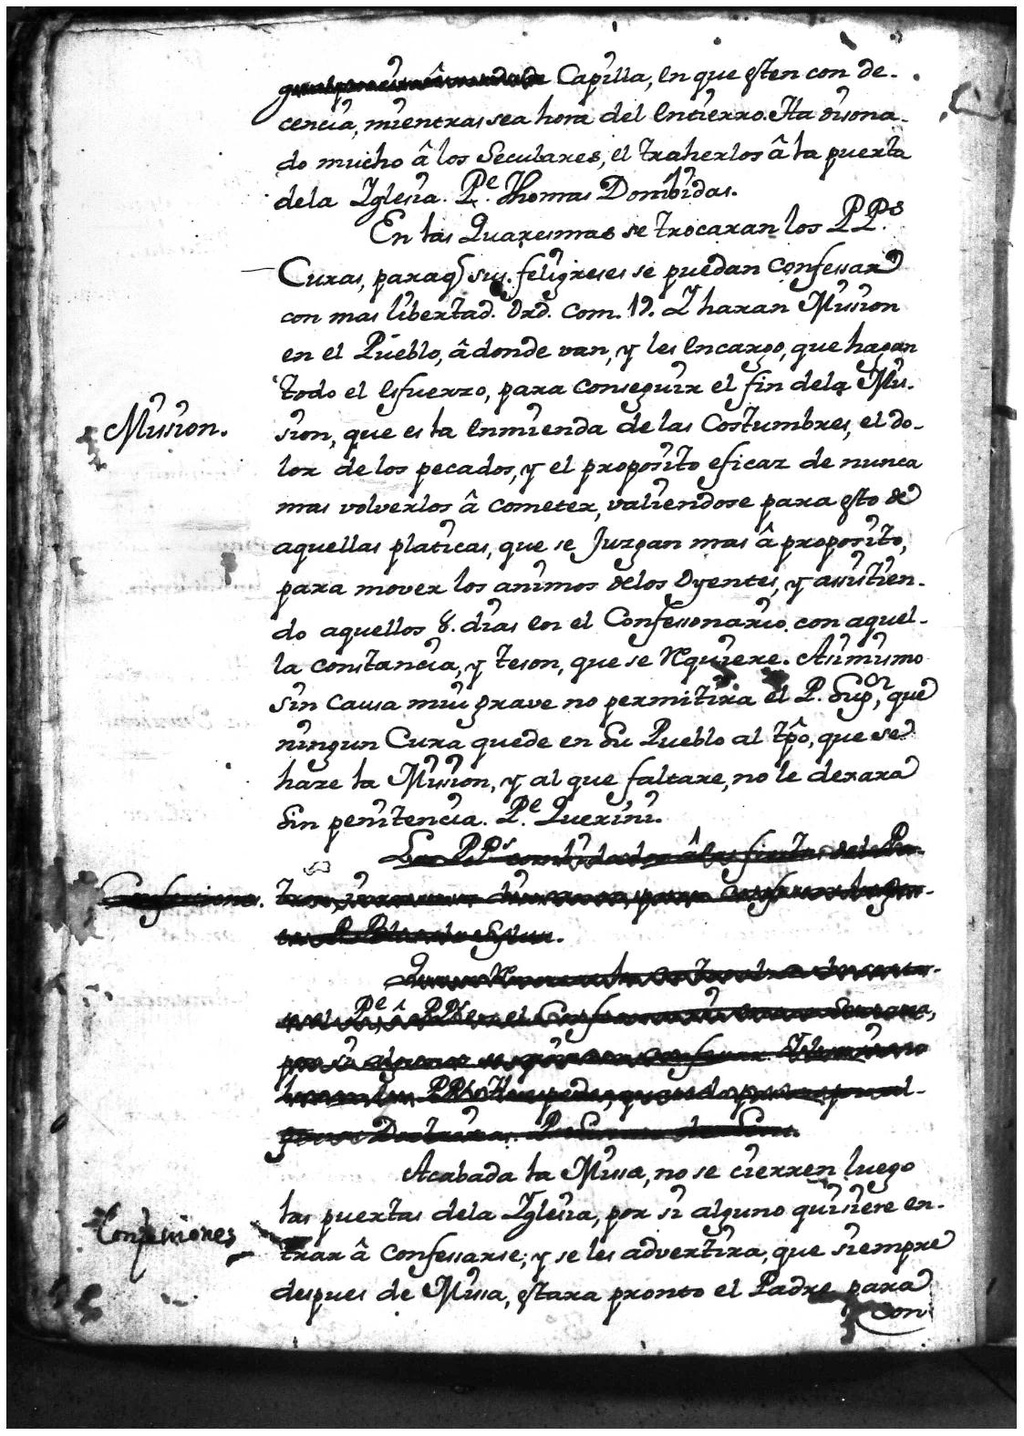 Capilla, en que esten con de-
cencia, mientras sea hora del Entierro. Ha disona-
do mucho â los Seculares, el traherlos â la puerta
dela Yglesia. Pe. Thomas Dombidas.
En las Quaresmas se trocaran los PPs.
Curas, paraq sus feligreses se puedan confessar
con mas libertad. Ord. Com. 19. Y haran Mision
en el Pueblo, âdonde van, y les encargo, que hagan
todo el esfuerzo, para conseguir el fin dela Mi-
Mision.
sion, que es la enmienda de las Costumbres, el do-
lor de los pecados, y el proposito eficaz de nunca
mas volverlos â cometer, valiendose para esto de
aquellas platicas, que se Juzgan mas â proposito,
para mover los animos delos Oyentes, y assistien-
do aquellos 8. dias en el Confessonario con aquel-
la constancia, y teson, que se requiere. Asimismo
sin causa mui grave no permitira el P. Supor, que
ningun Cura quede en su Pueblo al tpô, que se
hare la Mision, y al que faltare, no le dexara
sin penitencia. Pe. Querini.
Los PPs. combidados â las fiestas del Pa-
Confessiones.
Pe. â PPs en el
por si alguno se quisiere confessar
los PPs
Acabada la Missa, no se cierren luego
las puertas dela Yglesia, por si alguno quisiere en-
Confesiones
trar â confessarse; y se les advertira, que siempre
despues de Missa, estara pronto el Padre para
con